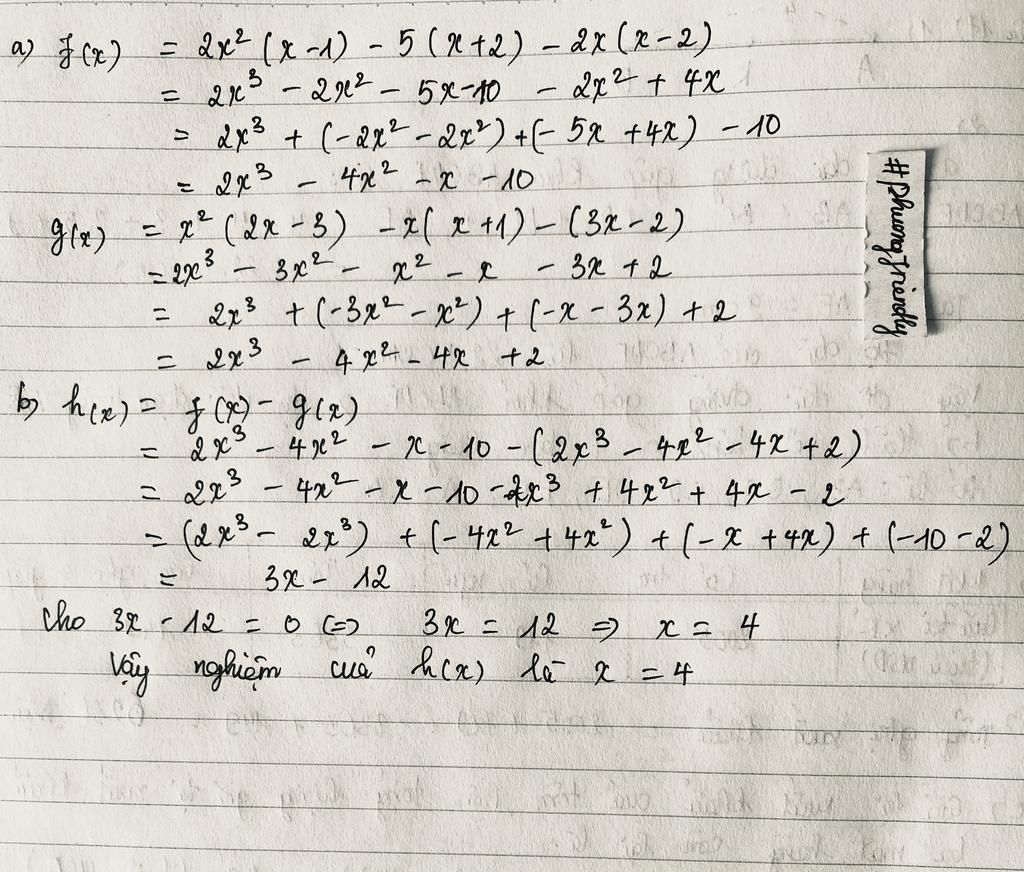 a) f(x) = 2x² (x - 1) - 5 (x + 2) - 2x (x - 2)
= 2x³ - 2x² - 5x - 10 - 2x² + 4x
= 2x³ + (-2x² - 2x²) + (- 5x + 4x) - 10
= 2x³ - 4x² - x - 10
g(x) = x² (2x - 3) - x( x + 1) - (3x - 2)
= 2x³ - 3x² - x² - x - 3x + 2
= 2x³ + (-3x² - x²) + (-x - 3x) + 2
= 2x³ - 4x² - 4x + 2
b) h(x) = f(x) - g(x)
= 2x³ - 4x² - x - 10 - (2x³ - 4x² - 4x + 2)
= 2x³ - 4x² - x - 10 - 2x³ + 4x² + 4x - 2
= (2x³ - 2x³) + (- 4x² + 4x²) + (- x + 4x) + (-10 - 2)
= 3x - 12
Cho 3x - 12 = 0 <=> 3x = 12 => x = 4
Vậy nghiệm cuả h(x) là x = 4
#phuongfriendly